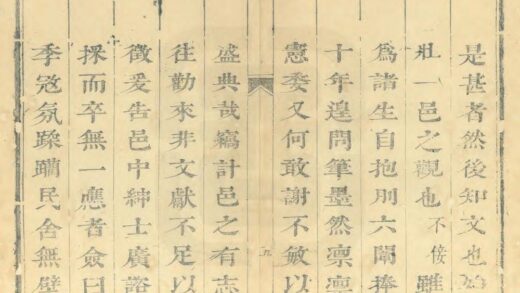 是甚者然後知文也
壯一邑之觀也不佞雖
爲諸生自抱刖六捧
十年遑問筆墨然凛凛
憲委又何敢謝不敏以
九
盛典哉竊計邑之有志
徃勸來非文獻不足以
徵爰告邑中紳士廣諮
採而卒無一應者僉曰
季寇氛蹂躪民舍無壁